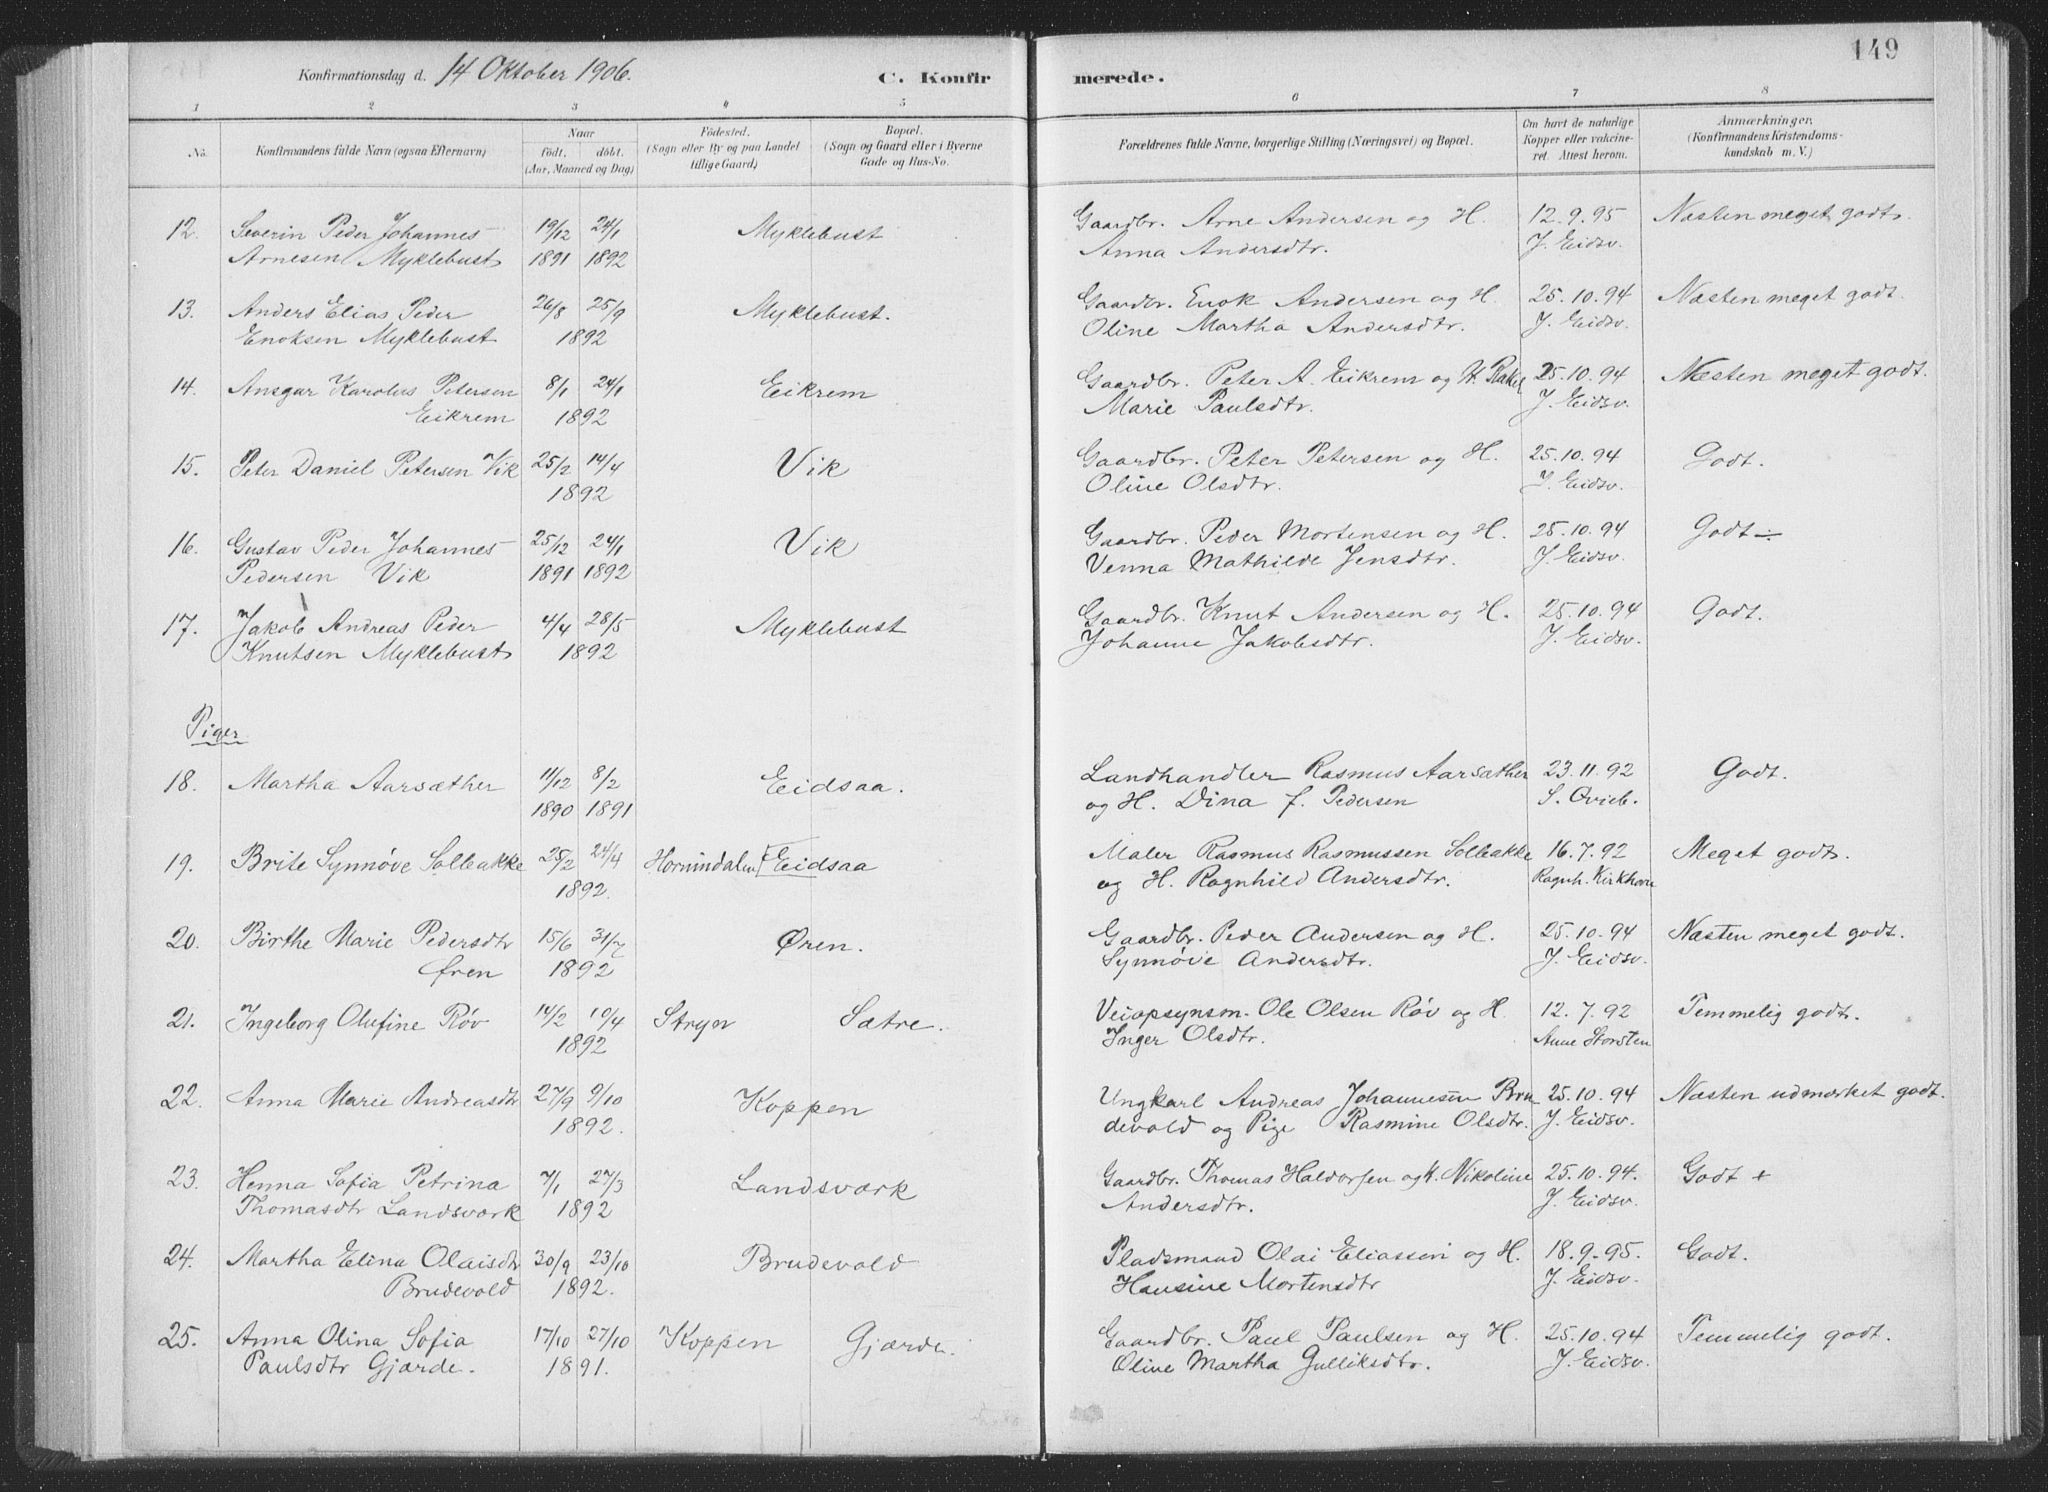 149
Konfirmationsdag d. 14 Oktober 1906. C. Konfir merede.
1 2 3 4 5 6 7 8
No. Konfirmandens fulde Navn (ogsaa Efternavn) Naar født. døbt. (Aar, Maaned og Dag) Fødested. (Sogn eller By og paa Landet tillige Gaard) Bopæl. (Sogn og Gaard eller i Byerne Gade og Hus-No. Forældrenes fulde Navne, borgerlige Stilling (Næringsvei) og Bopæl. Om havt de naturlige Kopper eller vaccineret. Attest herom. Anmærkninger. (Konfirmandens Kristendomskundskab m. V.)
12. Severin Peder Johannes 19/12 24/1 Myklebust Gaardbr. Arne Andersen og H. 12.9.95 Næsten meget godt.
Arnesen Myklebust 1891 1892 Anna Andersdtr. J. Eidsv.
13. Anders Elias Peder 26/8 25/9 Myklebust. Gaardbr. Enok Andersen og H. 25.10.94 Næsten meget godt.
Enoksen Myklebust 1892 Oline Martha Andersdtr. J. Eidsv.
14. Ansgar Karolus Petersen 8/1 24/1 Eikrem Gaardbr. Peter A. Eikrem og H. Rakel 25.10.94 Næsten meget godt.
Eikrem 1892 Marie Paulsdtr. J. Eidsv.
15. Peter Daniel Petersen Vik 25/2 14/4 Vik Gaardbr. Peter Petersen og H. 25.10.94 Godt.
1892 Oline Olsdtr. J. Eidsv.
16. Gustav Peder Johannes 25/12 24/1 Vik Gaardbr. Peder Mortensen og H. 25.10.94 Godt ÷
Pedersen Vik 1891 1892 Venna Mathilde Jensdtr. J. Eidsv.
17. Jakob Andreas Peder 4/4 28/5 Myklebust Gaardbr. Knut Andersen og H. 25.10.94 Godt.
Knutsen Myklebust 1892 Johanne Jakobsdtr. J. Eidsv.
Piger
18. Martha Aarsæther 11/12 8/2 Eidsaa. Landhandler Rasmus Aarsæther 23.11.92 Godt.
1890 1891 og H. Dina f. Pedersen S. Qvieb.
19. Brite Synnøve Solbakke 25/2 24/4 Hornindalen Eidsaa Maler Rasmus Rasmussen Solbakke 16.7.92 Meget godt.
1892. og H. Ragnhild Andersdtr. Ragnh. Kirkhorn
20. Birthe Marie Pedersdtr 15/6 31/7 Øren. Gaardbr. Peder Andersen og H. 25.10.94 Næsten meget godt.
Øren 1892 Synnøve Andersdtr. J. Eidsv.
21. Ingeborg Olufine Røv 14/2 10/4 Stryn Sætre. Veiopsynsm. Ole Olsen Røv og H. 12.7.92 Temmelig godt.
1892 Inger Olsdtr. Anne Storsten
22. Anna Marie Andreasdtr 27/9 9/10 Koppen Ungkarl Andreas Johannesen Bru 25.10.94 Næsten udmærket godt.
1892. devold og Pige Rasmine Olsdtr. J. Eidsv.
23. Henna Sofia Petrina 7/1 27/3 Landsværk Gaardbr. Thomas Haldorsen og H. Nikoline 25.10.94. Godt +
Thomasdtr Landsværk 1892 Andersdtr. J. Eidsv.
24. Martha Elina Olaisdtr 30/9 23/10 Brudevold Pladsmand Olai Eliassen og H. 18.9.95. Godt.
Brudevold 1892. Hansine Mortensdtr J. Eidsv.
25. Anna Olina Sofia 17/10 27/10 Koppen Gjærde. Gaardbr. Paul Paulsen og H. 25.10.94 Temmelig godt.
Paulsdtr Gjærde. 1891. Oline Martha Gulliksdtr. J. Eidsv.